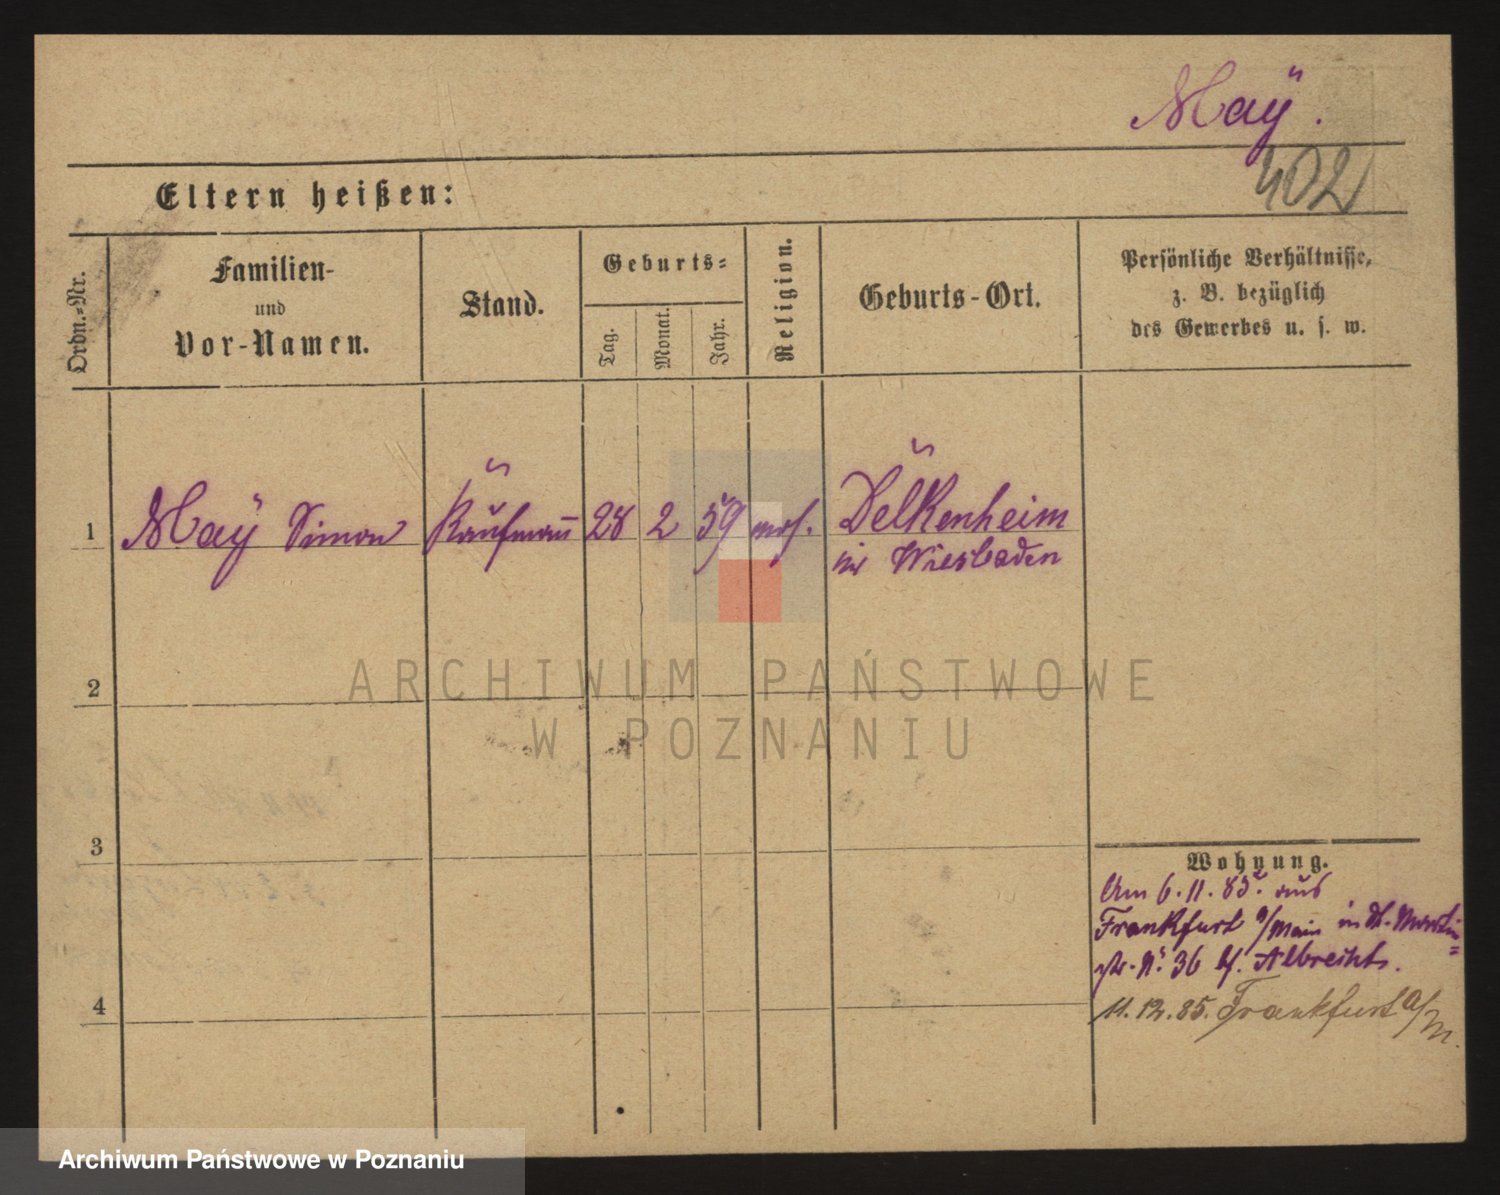 Maÿ.
402
Eltern heißen:
Ordn.-Nr.
Familien-
und
Vor-Namen.
Stand.
Geburts-
Tag.
Monat.
Jahr.
Religion.
Geburts-Ort.
Persönliche Verhältnisse,
z. B. bezüglich
des Gewerbes u. s. w.
1
Maÿ Simon
Kaufmann
28
2
59
mos.
Delkenheim
in Wiesbaden
2
ARCHIWUM PAŃSTWOWE
W POZNANIU
3
4
Wohnung.
Am 6.11.85. aus
Frankfurt a/Main in St. Martin=
str. No. 36 bei Albrecht.
11.12.85. Frankfurt a/M.
Archiwum Państwowe w Poznaniu